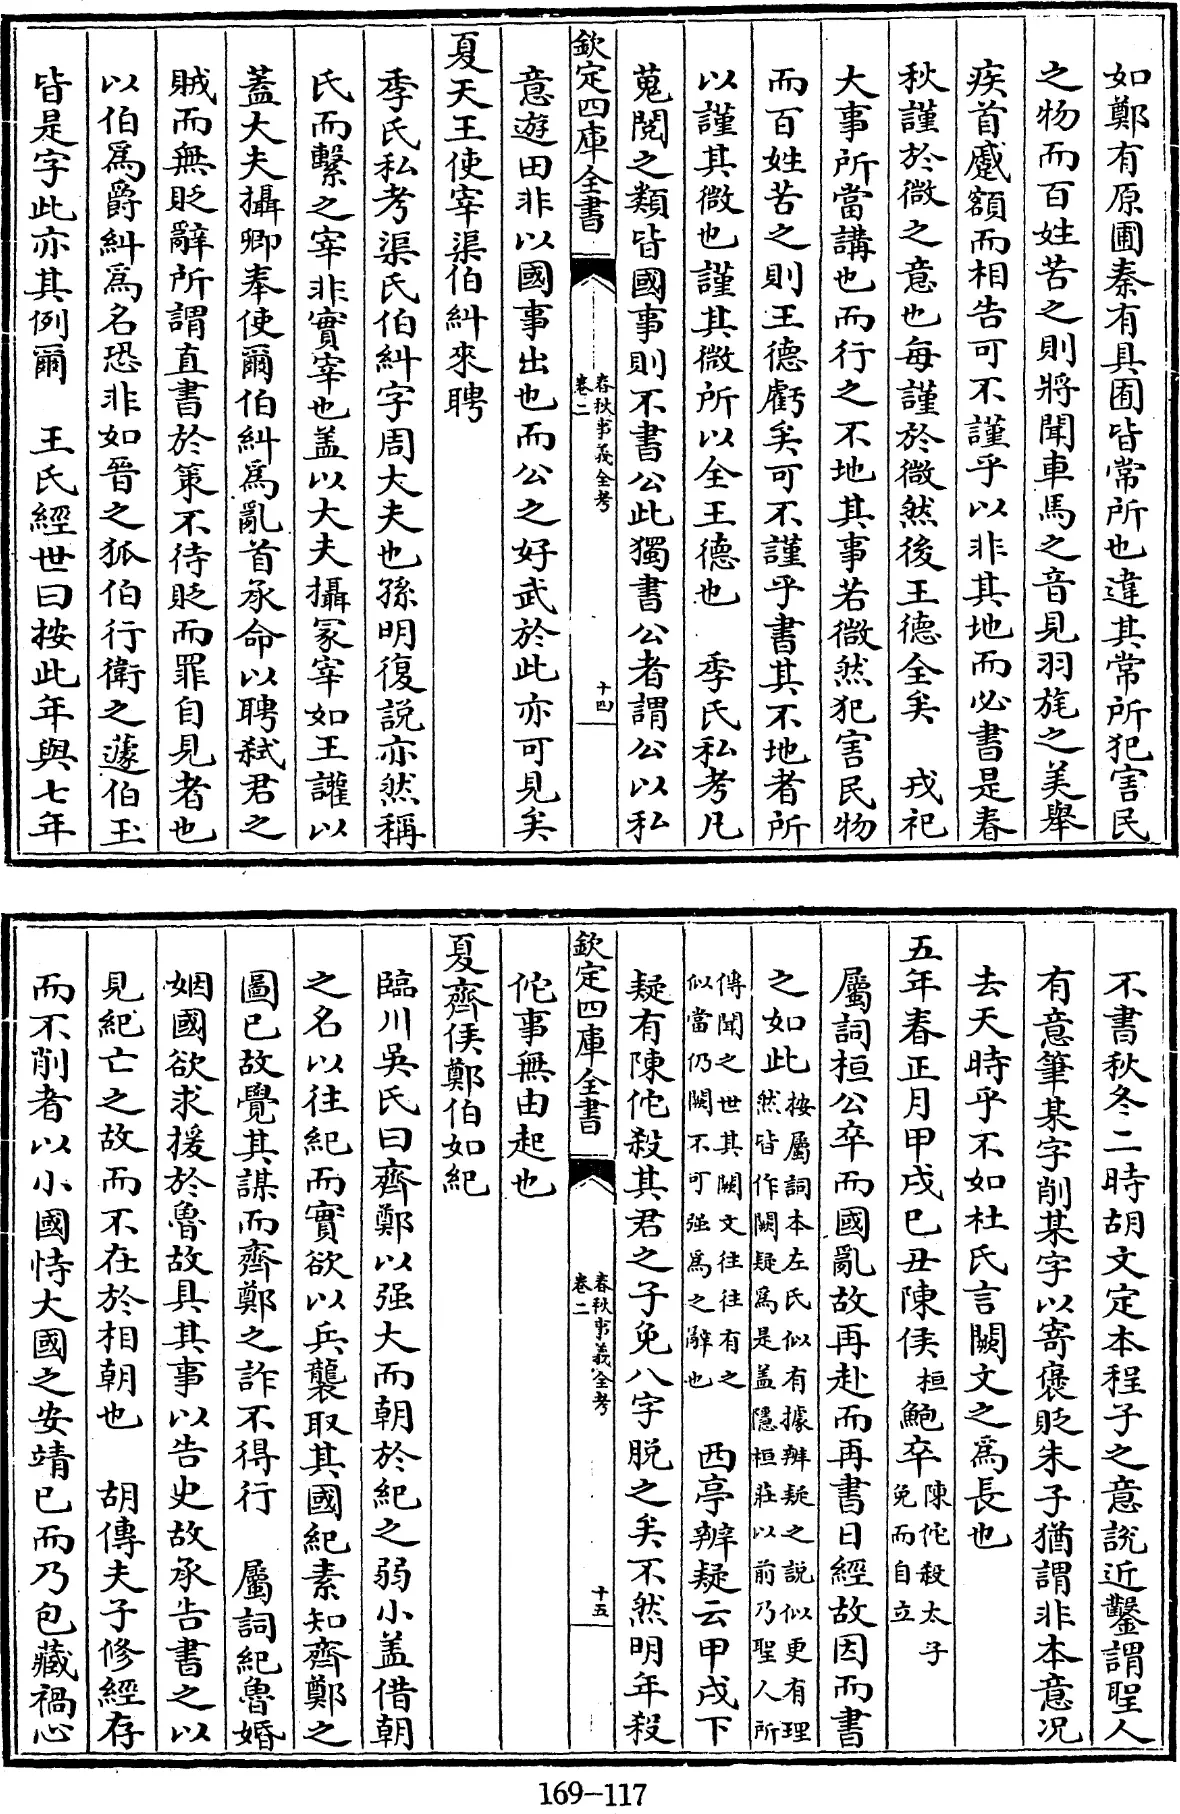 如鄭有原圃秦有具囿皆常所也違其常所犯害民
之物而百姓苦之則將聞車馬之音見羽旄之美舉
疾首蹙額而相告可不謹乎以非其地而必書是春
秋謹於微之意也每謹於微然後王德全矣　戎祀
大事所當講也而行之不地其事若微然犯害民物
而百姓苦之則王德虧矣可不謹乎書其不地者所
以謹其微也謹其微所以全王德也　季氏私考凡
蒐閱之類皆國事則不書公此獨書公者謂公以私
欽定四庫全書
春秋事義全考
卷二
十四
意遊田非以國事出也而公之好武於此亦可見矣
夏天王使宰渠伯糾來聘
季氏私考渠氏伯糾字周大夫也孫明復説亦然稱
氏而繫之宰非實宰也盖以大夫攝冢宰如王讙以
蓋大夫攝卿奉使爾伯糾爲亂首承命以聘弑君之
賊而無貶辭所謂直書於策不待貶而罪自見者也
以伯爲爵糾爲名恐非如晉之狐伯行衛之蘧伯玉
皆是字此亦其例爾　王氏經世曰按此年與七年
不書秋冬二時胡文定本程子之意説近鑿謂聖人
有意筆某字削某字以寄褒貶朱子猶謂非本意况
去天時乎不如杜氏言闕文之爲長也
五年春正月甲戌己丑陳侯桓鮑卒陳佗殺太子
免而自立
屬詞桓公卒而國亂故再赴而再書日經故因而書
之如此按屬詞本左氏似有據辨疑之説似更有理
然皆作闕疑爲是盖隱桓莊以前乃聖人所
傳聞之世其闕文往往有之
似當仍闕不可强爲之辭也　西亭辨疑云甲戌下
疑有陳佗殺其君之子免八字脱之矣不然明年殺
欽定四庫全書
春秋事義全考
卷二
十五
佗事無由起也
夏齊侯鄭伯如紀
臨川吳氏曰齊鄭以强大而朝於紀之弱小盖借朝
之名以往紀而實欲以兵襲取其國紀素知齊鄭之
圖已故覺其謀而齊鄭之詐不得行　屬詞紀魯婚
姻國欲求援於魯故具其事以告史故承告書之以
見紀亡之故而不在於相朝也　胡傳夫子修經存
而不削者以小國恃大國之安靖已而乃包藏禍心
169-117